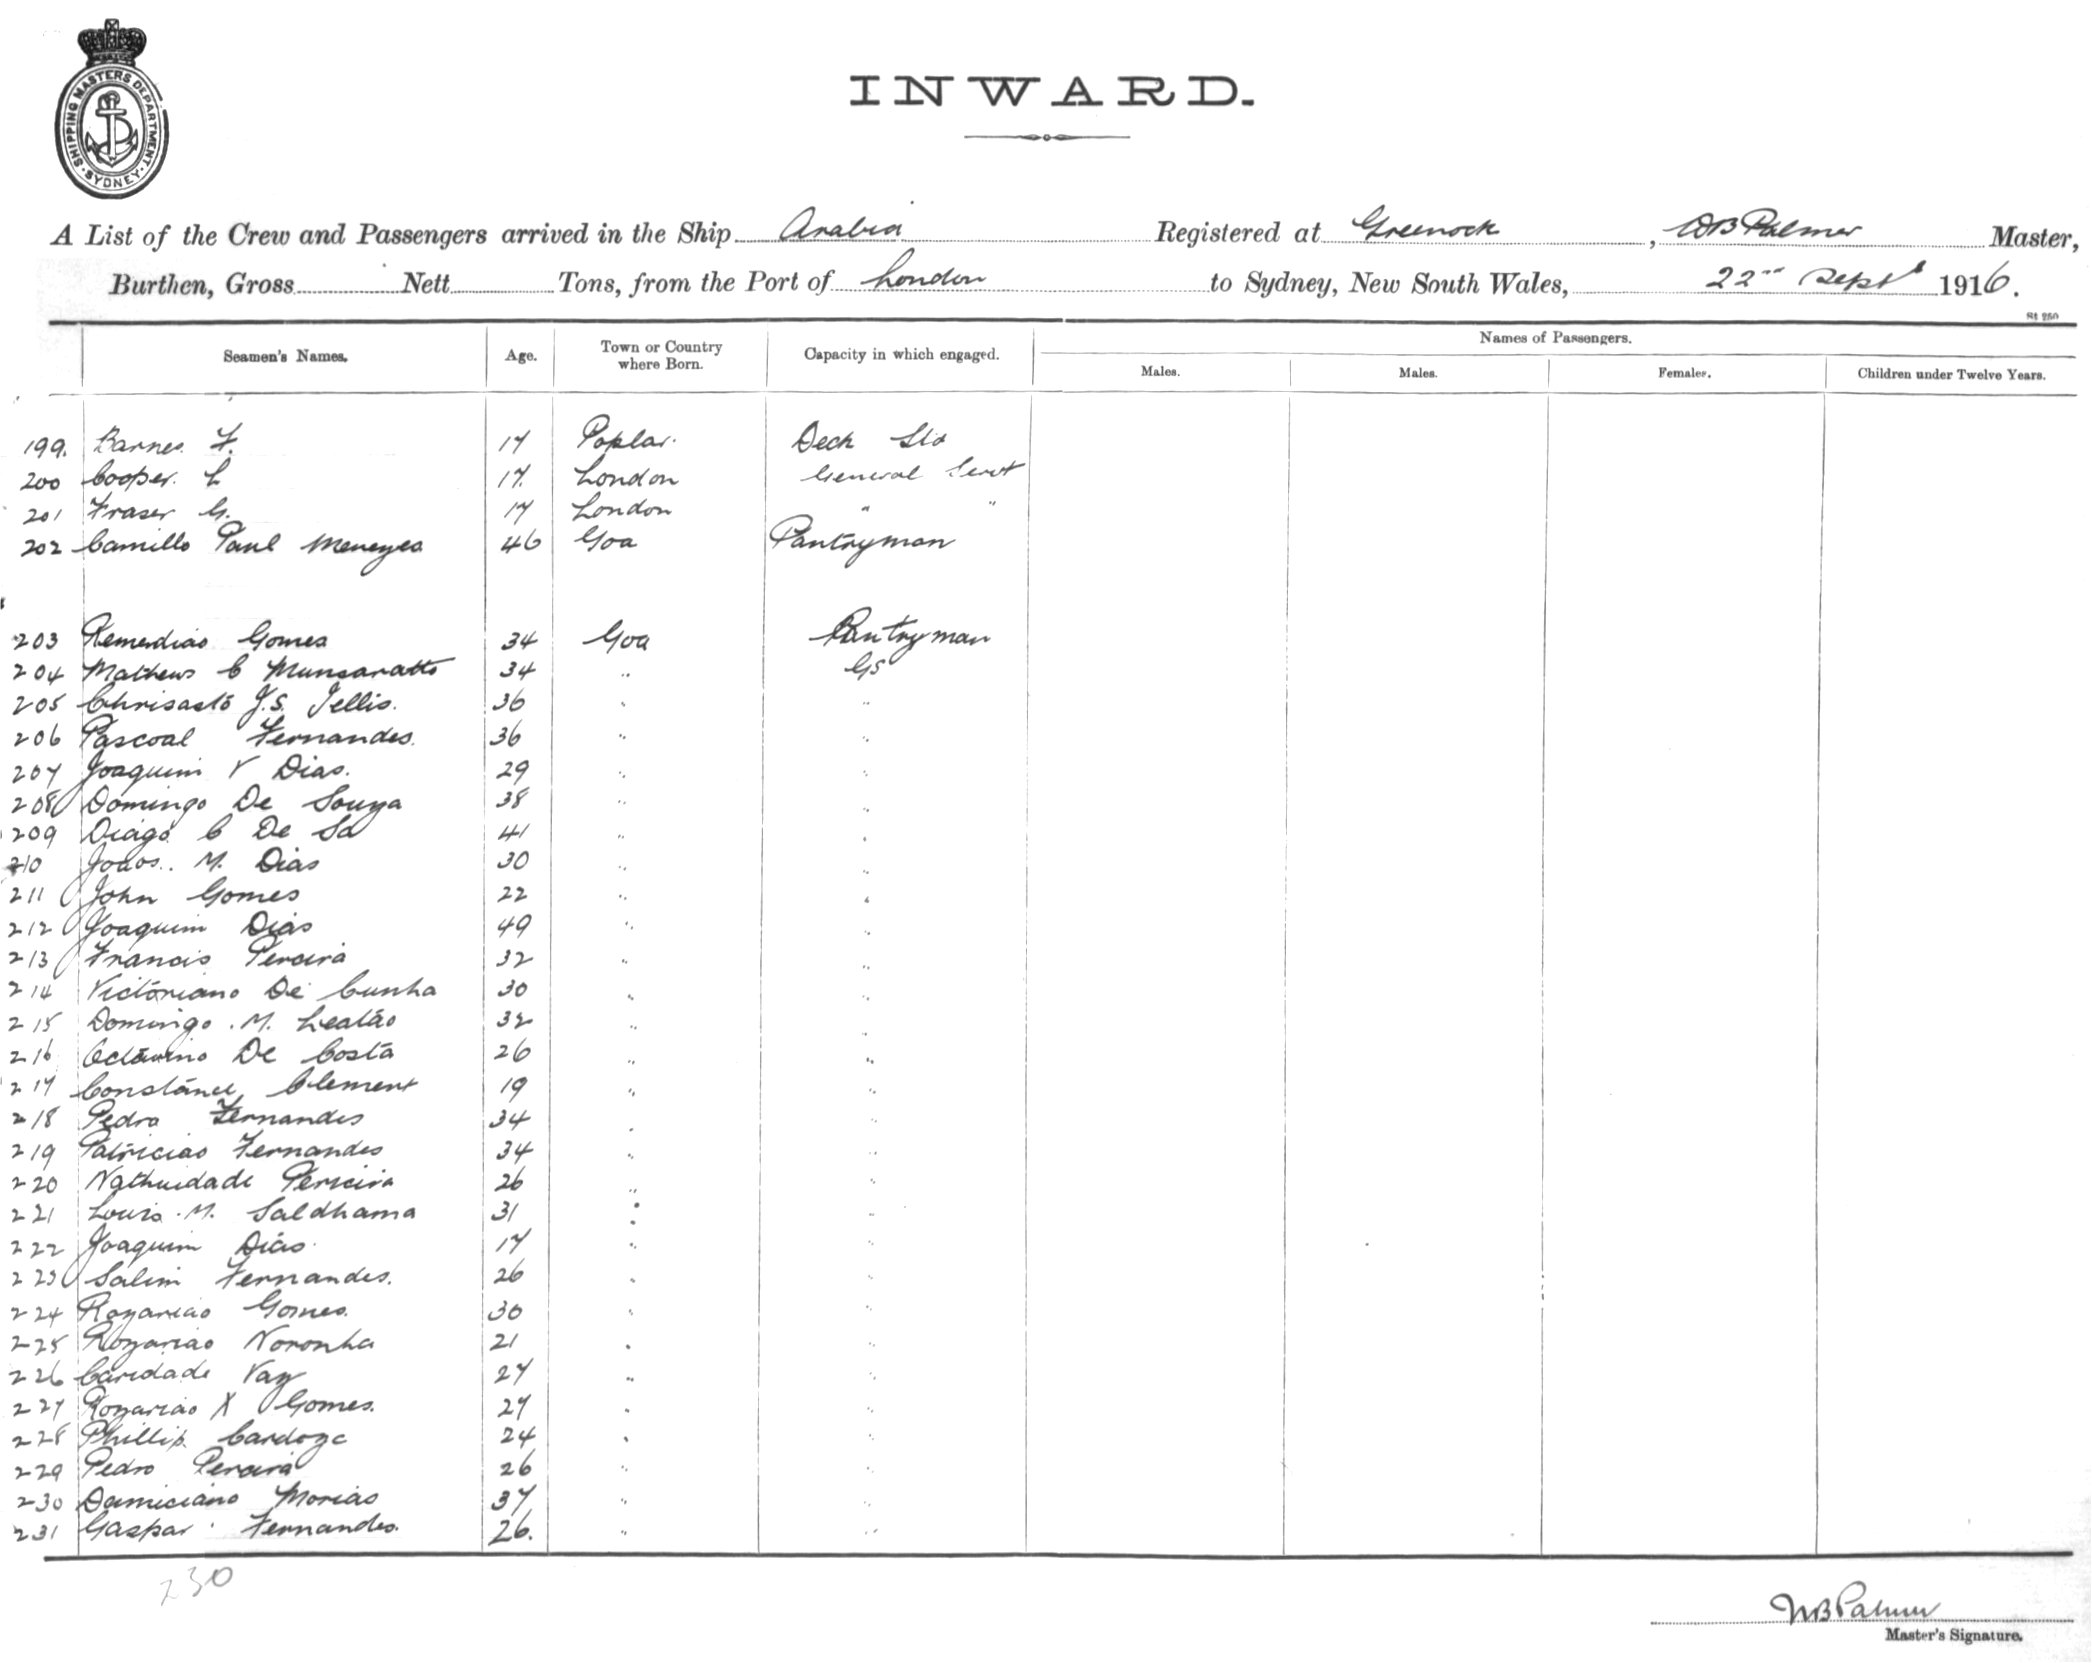 SHIPPING MASTERS DEPARTMENT. SYDNEY.
INWARD.
A List of the Crew and Passengers arrived in the Ship Arabia Registered at Greenock, WB Palmer Master,
Burthen, Gross Nett Tons, from the Port of London to Sydney, New South Wales, 22nd Sept 1916.
St 250
Seamen's Names. Age. Town or Country where Born. Capacity in which engaged. Names of Passengers.
Males. Males. Females. Children under Twelve Years.
199. Barnes F. 17 Poplar. Deck Std
200 Cooper. L 17. London General Servt
201 Fraser G. 17 London " "
202 Camillo Paul Menezes 46 Goa Pantryman
203 Remediao Gomes 34 Goa Pantryman
204 Mathews C Munsaratto 34 " GS
205 Chrisasto J.S. Tellis. 36 " "
206 Pascoal Fernandes. 36 " "
207 Joaquim V Dias. 29 " "
208 Domingo De Souza 38 " "
209 Diago C De Sa 41 " "
210 Joaos. M. Dias 30 " "
211 John Gomes 22 " "
212 Joaquim Dias 49 " "
213 Francis Pereira 32 " "
214 Victoriano De Cunha 30 " "
215 Domingo. M. Leatao 32 " "
216 Octavino De Costa 26 " "
217 Constance Clement 19 " "
218 Pedro Fernandes 34 " "
219 Patriciao Fernandes 34 " "
220 Nathuidade Perieira 26 " "
221 Louis. M. Saldhama 31 " "
222 Joaquim Dias. 17 " "
223 Salim Fernandes. 26 " "
224 Rozariao Gomes. 30 " "
225 Rozariao Noronha 21 " "
226 Caridade Vaz 27 " "
227 Rozariao X Gomes. 27 " "
228 Phillip. Cardozo 24 " "
229 Pedro Pereira 26 " "
230 Damiciano Morias 37 " "
231 Gaspar Fernandes. 26. " "
230
WB Palmer
Master's Signature.